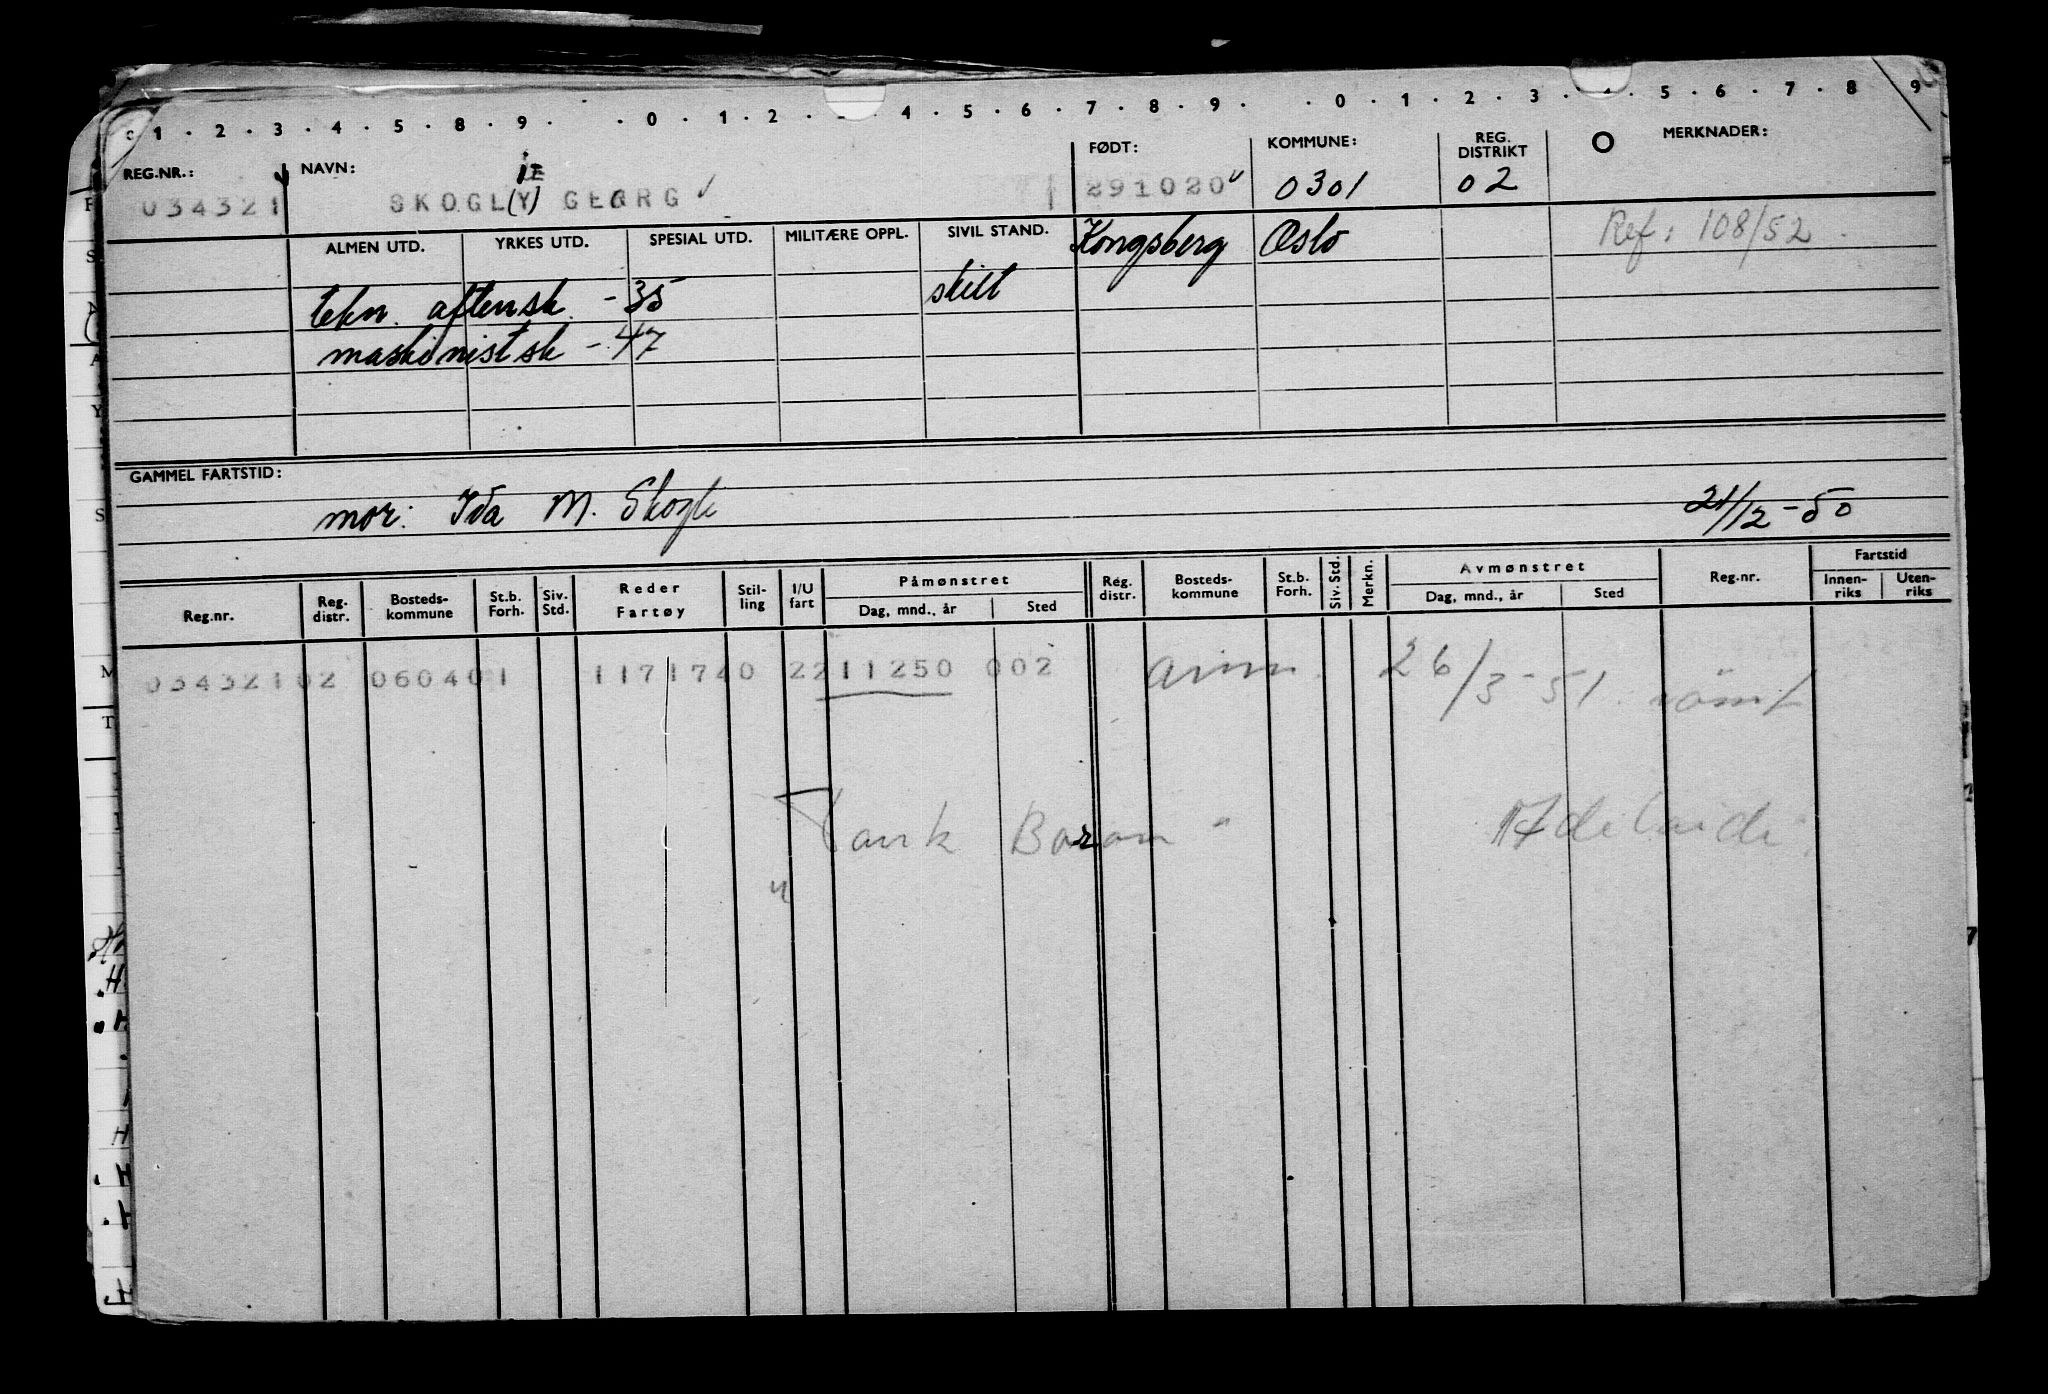 1 . 2 . 3 . 4 . 5 . 8 . 9 . . 0 . 1 . 2 . 4 . 5 . 6 . 7 . 8 . 9 . . 0 . 1 . 2 . 3 . 4 . 5 . 6 . 7 . 8 9
REG.NR.: NAVN: FØDT: KOMMUNE: REG. DISTRIKT MERKNADER:
034321 SKOGL(Y) GEORG ✓ 291020 0301 02
ALMEN UTD. YRKES UTD. SPESIAL UTD. MILITÆRE OPPL. SIVIL STAND. Kongsberg Oslo Ref: 108/52
tekn. aftensk. - 35 skilt
maskinistsk - 47
GAMMEL FARTSTID:
mor: Ida M. Skogli 21/12-50
Reg.nr. Reg. distr. Bosteds-kommune St.b. Forh. Siv. Std. Reder Fartøy Stil-ling I/U fart Påmønstret Dag, mnd., år Sted Reg. distr. Bosteds-kommune St.b. Forh. Siv. Std. Merkn. Avmønstret Dag, mnd., år Sted Reg.nr. Fartstid Innen-riks Uten-riks
03432102 060401 1171740 2211250 002 26/3-51 rømt
Tank Baron